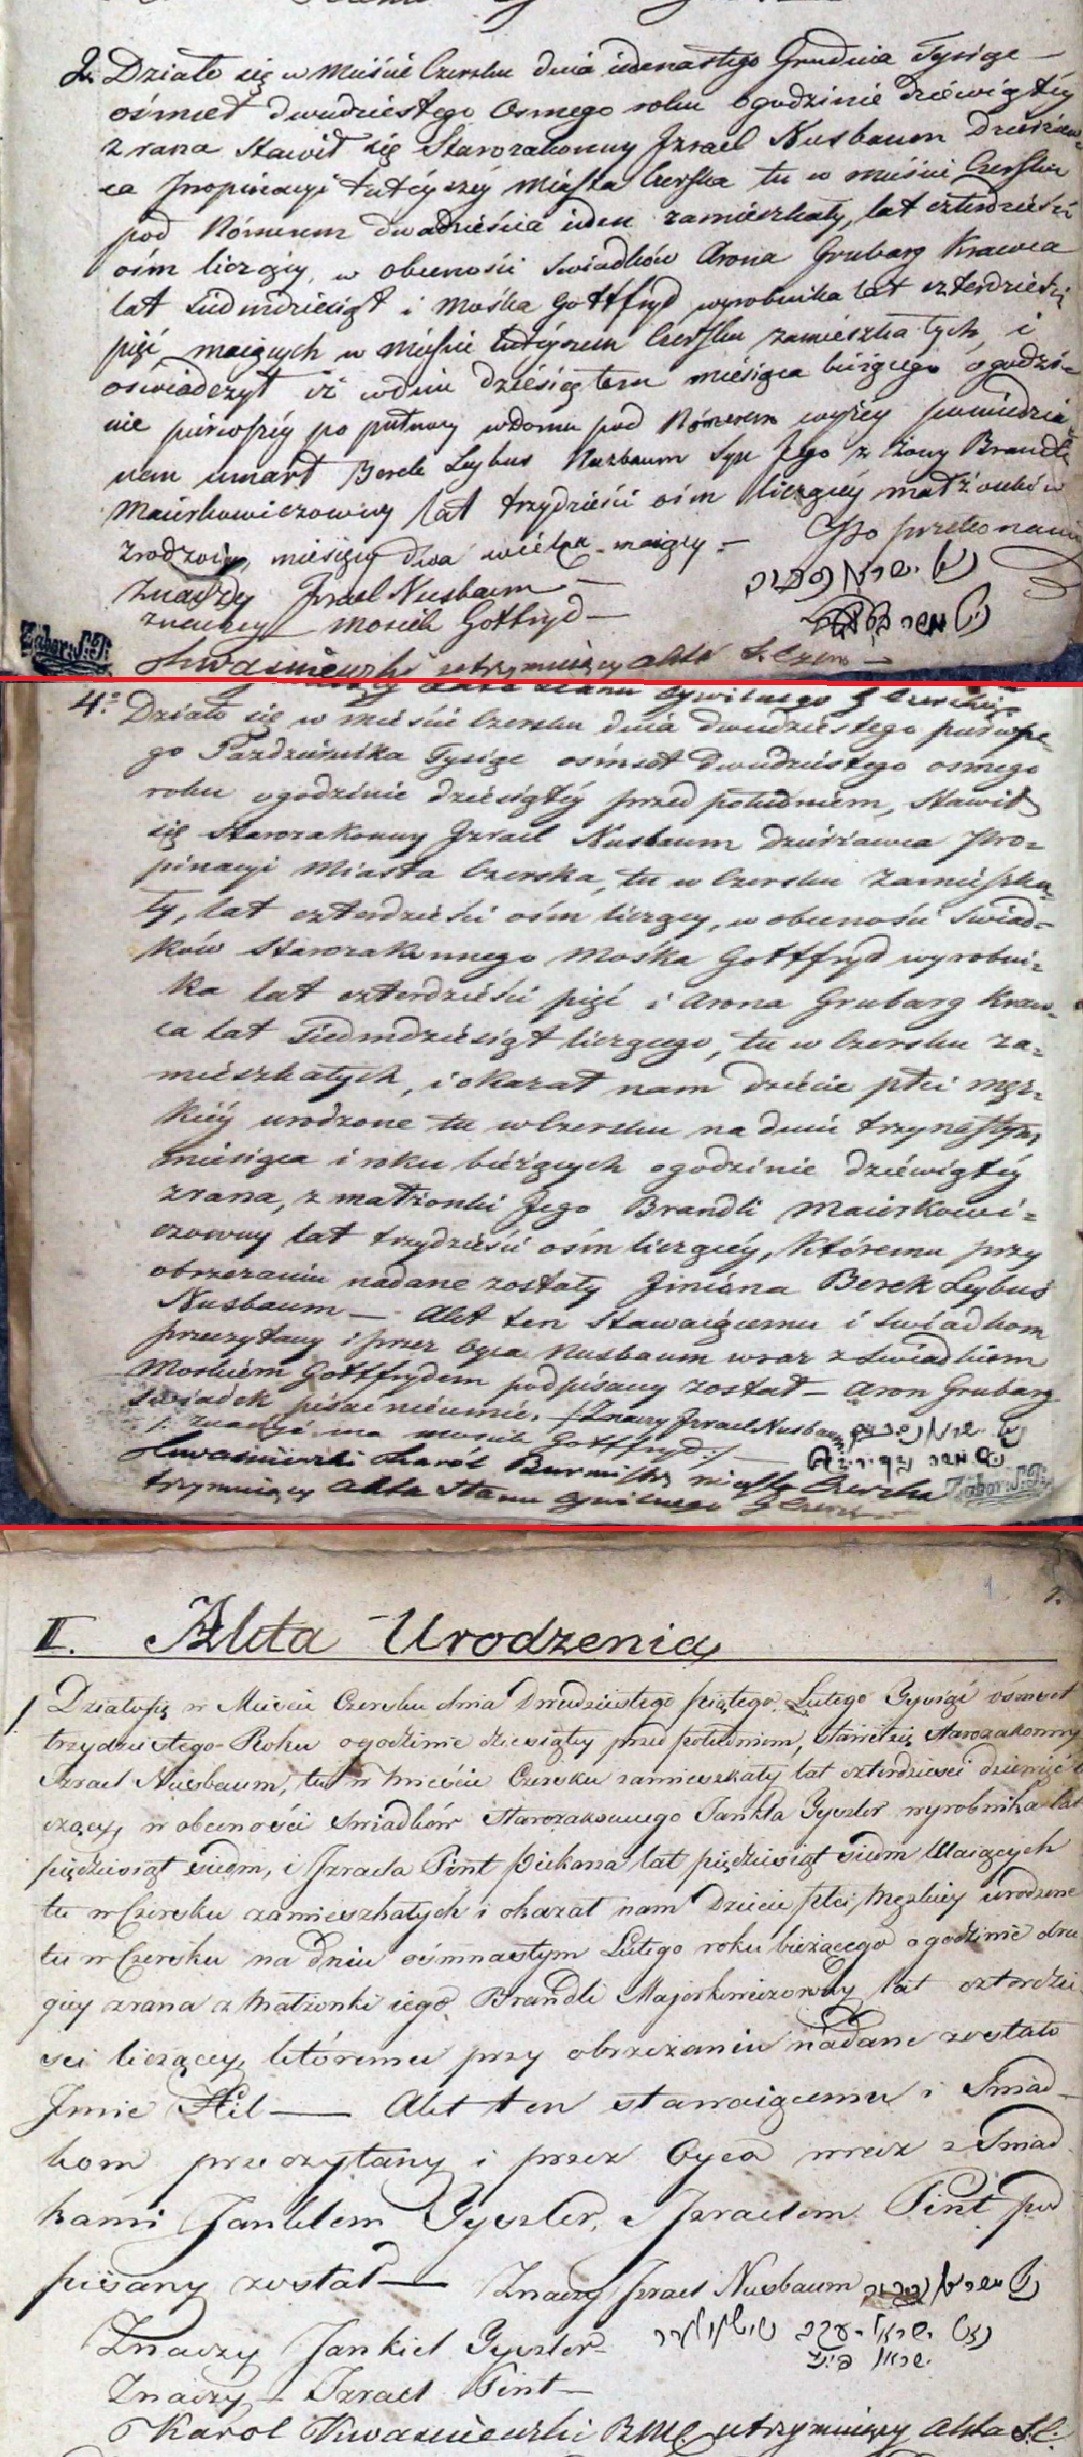 2. Działo się w Mieście Czersku dnia iedenastego Grudnia Tysiąc
ośmset dwudziestego Osmego roku o godzinie dziewiątey
z rana Stawił się Starozakonny Jzrael Nusbaum Dzierżaw-
ca Propinacyi tutéyszéy Miasta Czerska tu w mieście Czersku
pod Nómerem dwadzieścia ieden zamieszkały, lat czterdzieści
ośm liczący, w obecności Swiadków Arona Grubarg Krawca
lat siedmdziesiąt i Mośka Gottfryd wyrobnika lat czterdzieści
pięć maiących w Mieście tutéyszem Czersku zamieszkałych, i
oświadczył iż w dniu dziesiątem miesiąca bieżącego o godzi-
nie pierwszéy po północy w domu pod Nómerem wyżey powiedzia-
nem umarł Berek Leybus Nuzbaum Syn Jego z Żony Brandli
Maierkowiczowny lat trzydzieści ośm liczącéy małżonków
zrodzony, miesięcy dwa wieku maiący. — Po przekonaniu
Znaczy Jzrael Nusbaum —
znaczy Mosiek Gotfryd —
Kwasniewski utrzymuiący Akta S. Cywi —
Zabor: S.T.
4. Działo się w mieście Czersku dnia dwudziestego pierwsze-
go Pazdziernika Tysiąc ośmset Dwudziestego osmego
roku o godzinie dziesiątéy przed południem, Stawił
się Starozakonny Jzrael Nusbaum dzierżawca Pro-
pinacyi Miasta Czerska, tu w Czersku Zamieszka-
ły, lat czterdzieści ośm liczący, w obecności Swiad-
ków Starozakonnego Mośka Gottfryd wyrobni-
ka lat czterdzieści pięć i Arona Grubarg Kraw-
ca lat siedmdziesiąt liczącego, tu w Czersku za-
mieszkałych, i okazał nam dziecie płci męz-
kiéy urodzone tu w Czersku na dniu trzynastym
miesiąca i roku bieżących o godzinie dziewiątéy
z rana, z małżonki Jego Brandli Maierkowi-
czowny lat trzydzieści ośm liczącéy, któremu przy
obrzezaniu nadane zostały Jmiona Berek Leybus
Nusbaum — Akt ten Stawaiącemu i Swiadkom
przeczytany i przez Oyca Nusbaum wraz z Swiadkiem
Moskiem Gottfrydem podpisany został — Aron Grubarg
Swiadek pisać nieumie. /: Znaczy Jzrael Nusbaum
/: znaczy Mosiek Gottfryd :/
Kwasniewski Karól Burmistrz miasta Czerska
trzymuiący Akta Stanu Cywilnego G. Czersk —
Zabor: S.T.
II. Akta Urodzenia
1 Działo się w Mieście Czersku dnia Dwudziestego piątego Lutego Tysiąc ośmset
trzydziestego Roku o godzinie dziesiątey przed południem, stawił się Starozakonny
Izrael Nusbaum, tu w mieście Czersku zamieszkały lat czterdzieści dziewięć
czący, w obecności Swiadków Starozakonnego Jankla Zyszler wyrobnika lat
pięćdziesiąt siedm, i Jzraela Pint Piekarza lat pięćdziesiąt siedm Maiących
tu w Czersku zamieszkałych i okazał nam Dziecie płci Męzkiey urodzone
tu w Czersku na dniu ośmnastym Lutego roku bieżącego o godzinie dru
giey z rana z Małżonki iego Brandli Majerkowiczowny lat czterdzie
sci liczącey, któremu przy obrzezaniu nadane zostało
Jmie Hil — Akt ten stawaiącemu i Swiad-
kom przeczytany i przez Oyca wraz z Swiad
kami Janklem Zyszler, i Jzraelem Pint pod
pisany został — Znaczy Jzrael Nusbaum
Znaczy Jankiel Zyszler
ישראל פינט
Znaczy — Izrael Pint —
Karol Kwasniewski B.M.C. utrzymuiący Akta S.C.